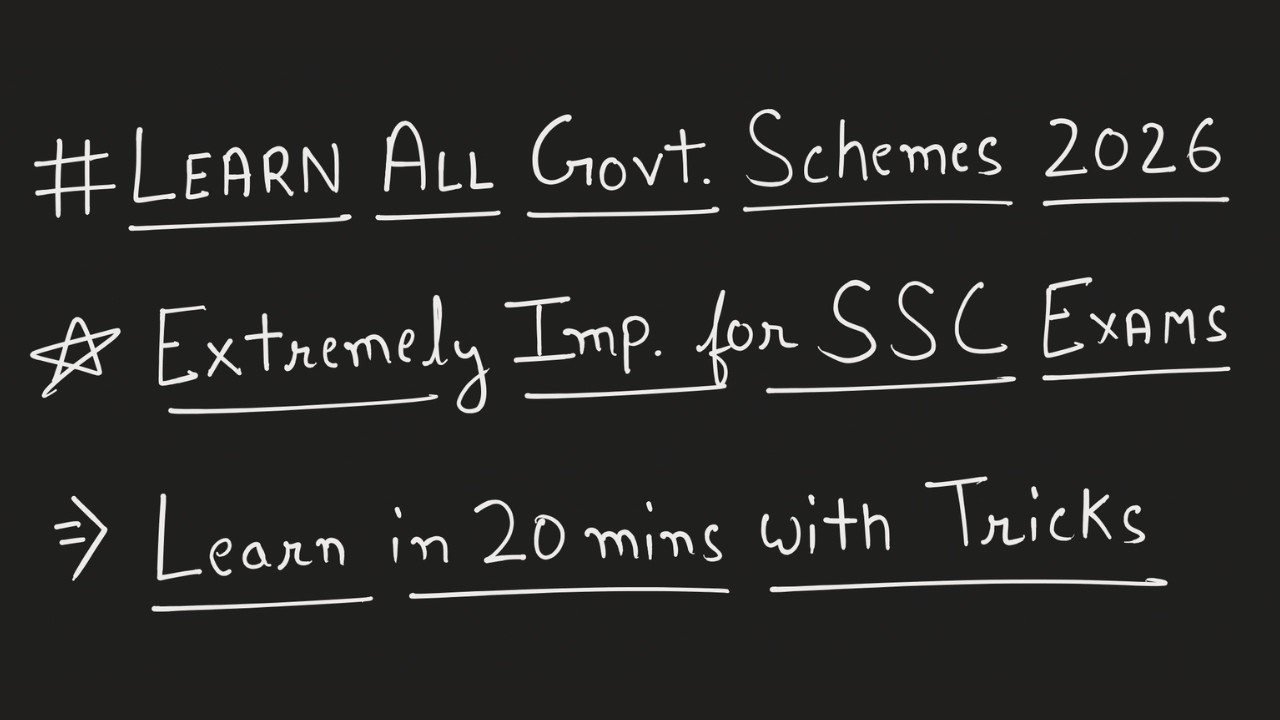 # LEARN ALL Govt. Schemes 2026
☆ Extremely Imp. for SSC EXAMS
⇒ Learn in 20 mins with Tricks